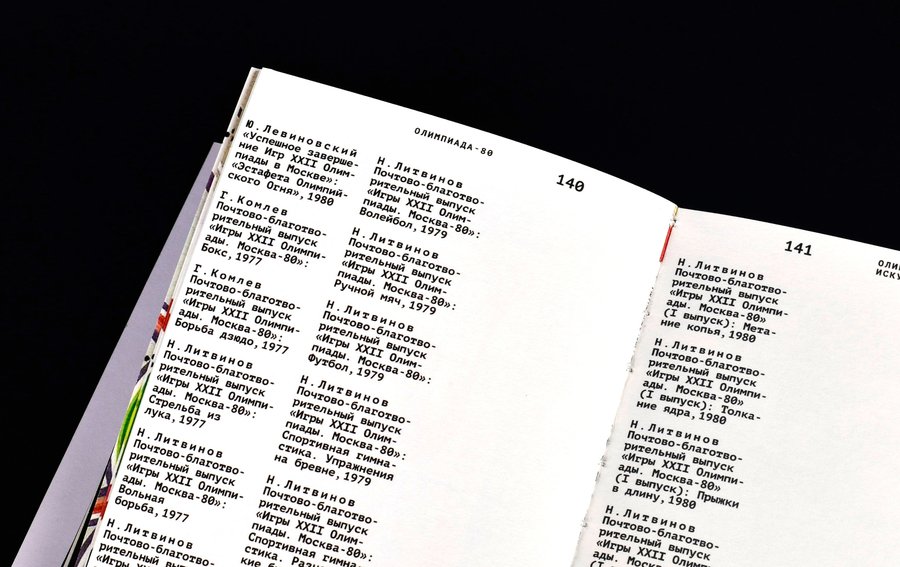 ОЛИМПИАДА-80
140
Ю. Левиновский
«Успешное заверше-
ние Игр XXII Олим-
пиады в Москве»:
«Эстафета Олимпий-
ского Огня», 1980
Г. Комлев
Почтово-благотво-
рительный выпуск
«Игры XXII Олимпи-
ады. Москва-80»:
Бокс, 1977
Г. Комлев
Почтово-благотво-
рительный выпуск
«Игры XXII Олимпи-
ады. Москва-80»:
Борьба дзюдо, 1977
Н. Литвинов
Почтово-благотво-
рительный выпуск
«Игры XXII Олимпи-
ады. Москва-80»:
Стрельба из
лука, 1977
Н. Литвинов
Почтово-благотво-
рительный выпуск
«Игры XXII Олимпи-
ады. Москва-80»:
Вольная
борьба, 1977
Н. Литвинов
Почтово-благотво-
рительный выпуск
«Игры XXII Олимпи-
Н. Литвинов
Почтово-благотво-
рительный выпуск
«Игры XXII Олим-
пиады. Москва-80»:
Волейбол, 1979
Н. Литвинов
Почтово-благотво-
рительный выпуск
«Игры XXII Олим-
пиады. Москва-80»:
Ручной мяч, 1979
Н. Литвинов
Почтово-благотво-
рительный выпуск
«Игры XXII Олим-
пиады. Москва-80»:
Футбол, 1979
Н. Литвинов
Почтово-благотво-
рительный выпуск
«Игры XXII Олим-
пиады. Москва-80»:
Спортивная гимна-
стика. Упражнения
на бревне, 1979
Н. Литвинов
Почтово-благотво-
рительный выпуск
«Игры XXII Олим-
пиады. Москва-80»:
Спортивная гимна-
стика.
141
Н. Литвинов
Почтово-благотво-
рительный выпуск
«Игры XXII Олимпи-
ады. Москва-80»
(I выпуск): Мета-
ние копья, 1980
Н. Литвинов
Почтово-благотво-
рительный выпуск
«Игры XXII Олимпи-
ады. Москва-80»
(I выпуск): Толка-
ние ядра, 1980
Н. Литвинов
Почтово-благотво-
рительный выпуск
«Игры XXII Олимпи-
ады. Москва-80»
(I выпуск): Прыжки
в длину, 1980
Н. Литвинов
Почтово-благотво-
рительный выпуск
«Игры XXII Олимпи-
ады. Москва-80»